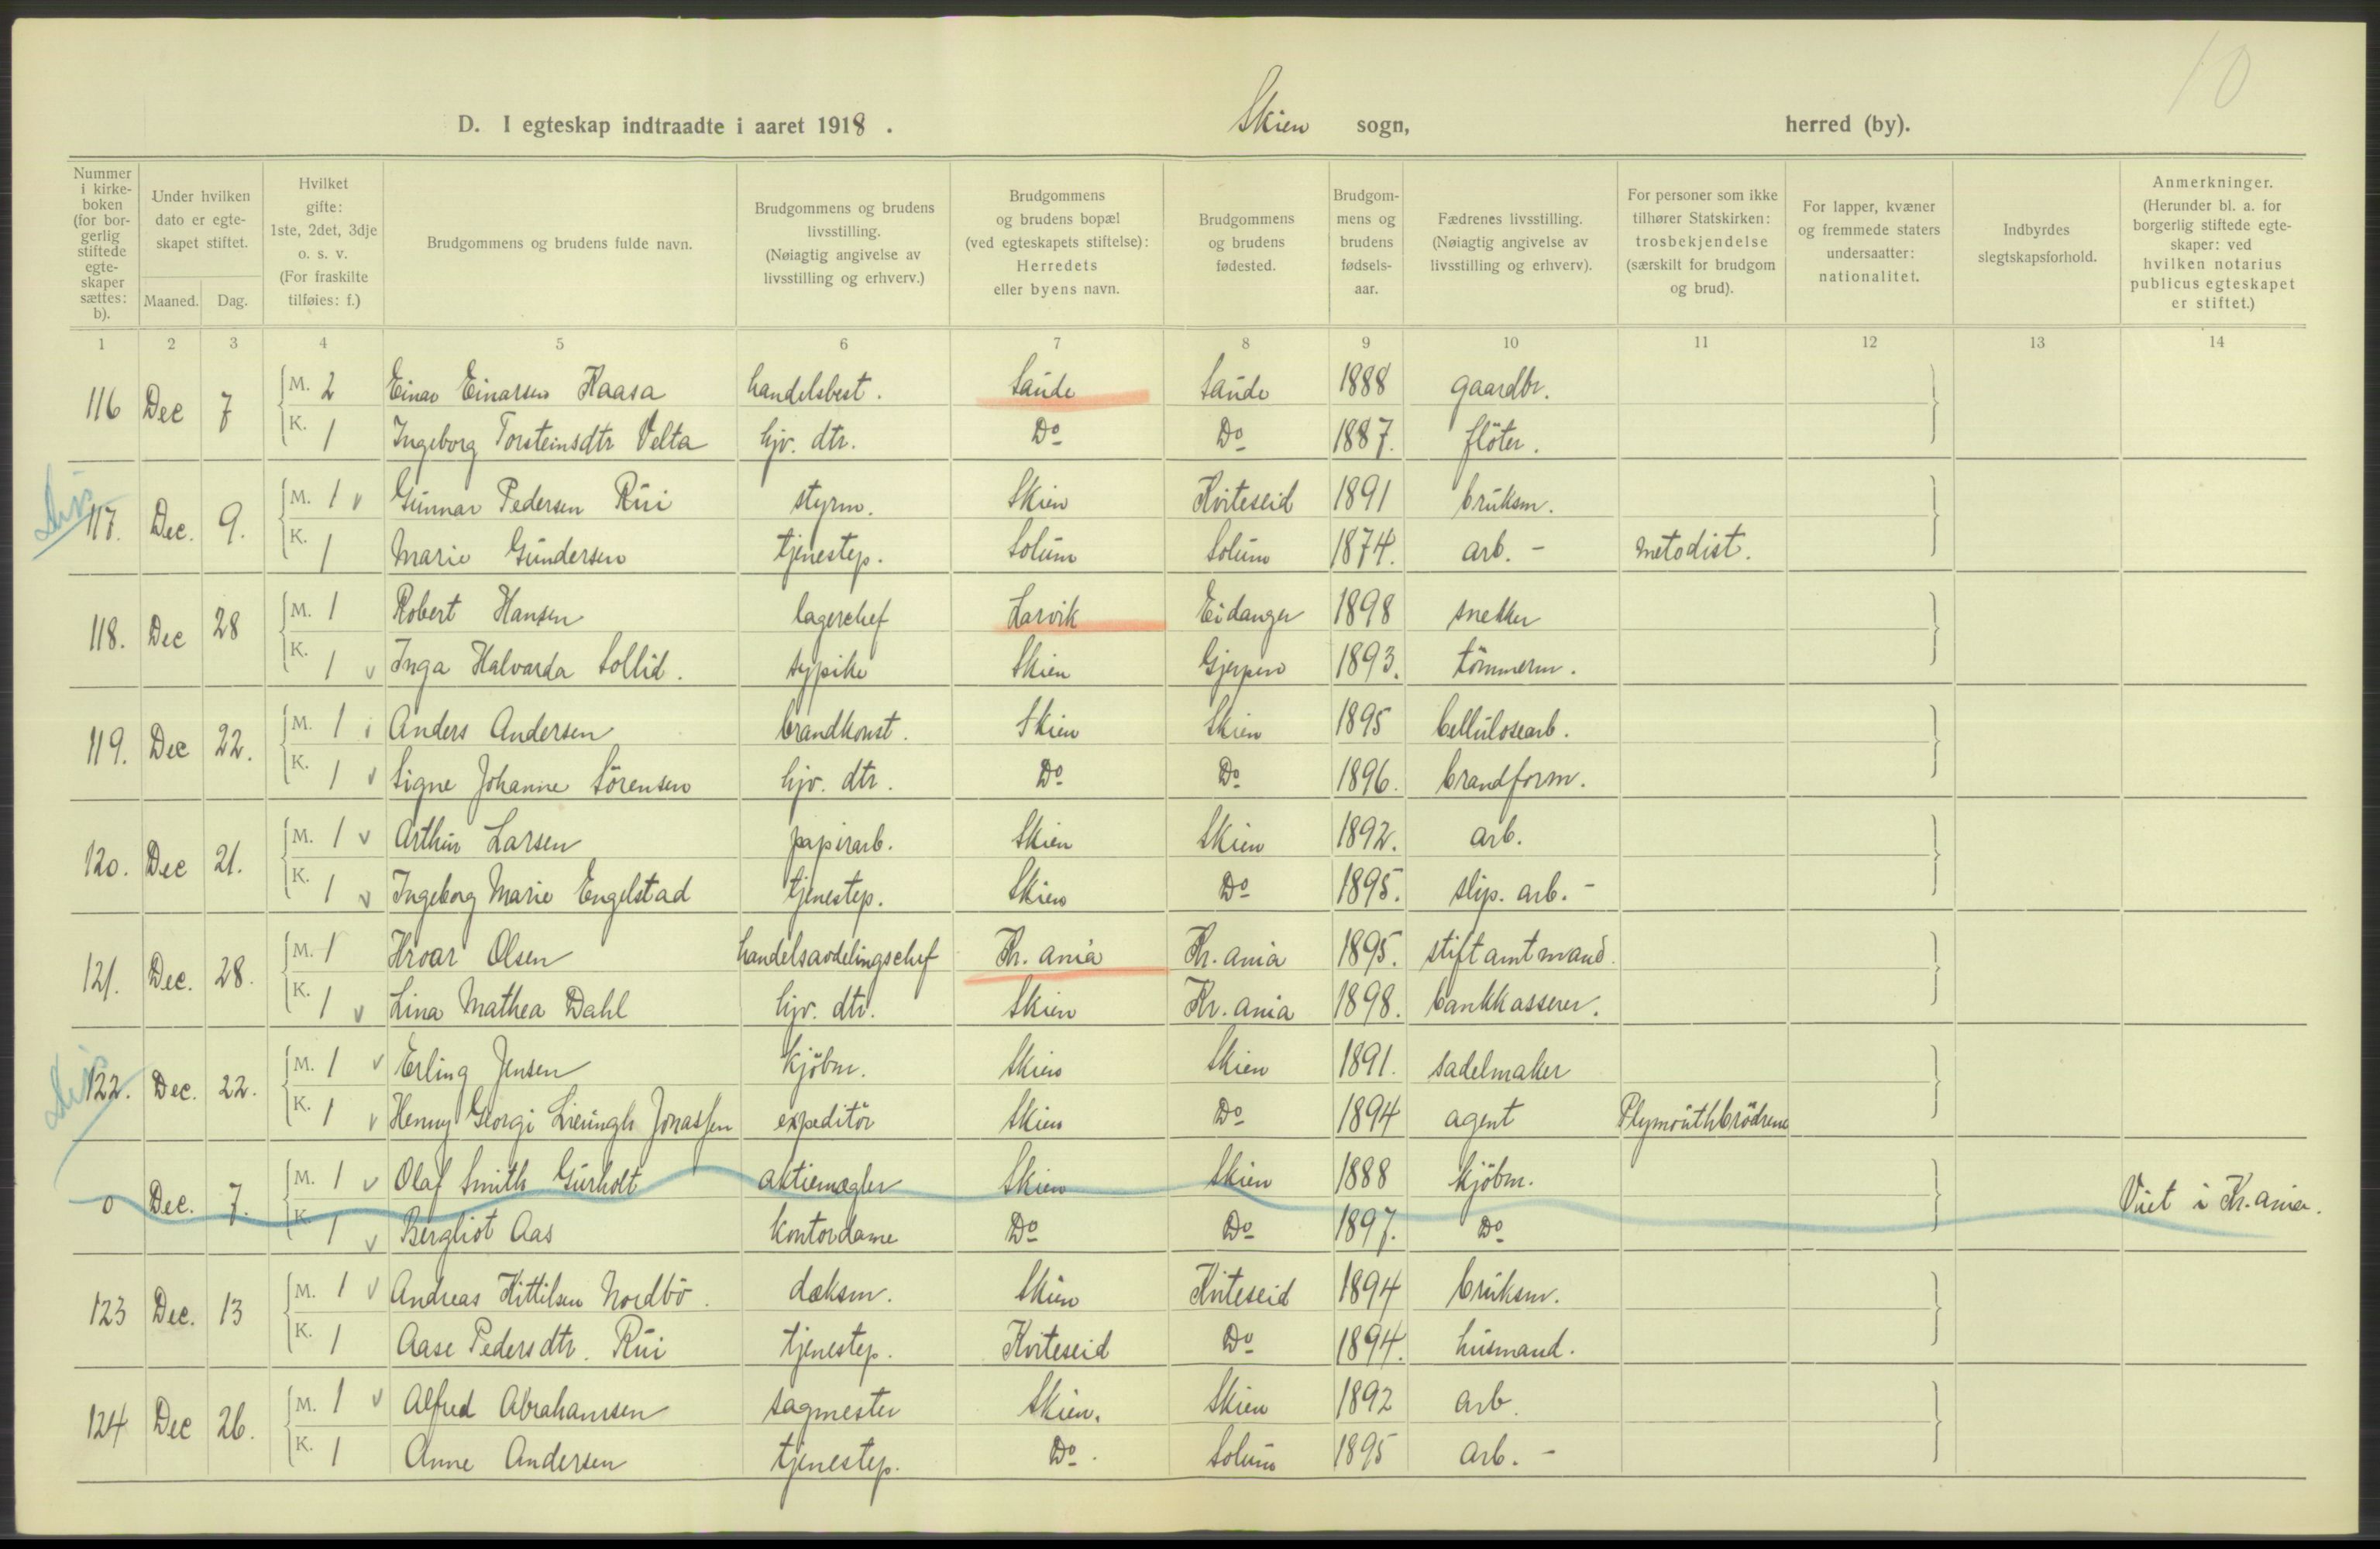 10
D. I egteskap indtraadte i aaret 1918. Skien sogn, herred (by).
Nummer i kirke-boken (for bor-gerlig stiftede egte-skaper sættes: b).
Under hvilken dato er egte-skapet stiftet.
Maaned. Dag.
Hvilket gifte: 1ste, 2det, 3dje o. s. v. (For fraskilte tilføies: f.)
Brudgommens og brudens fulde navn.
Brudgommens og brudens livsstilling. (Nøiagtig angivelse av livsstilling og erhverv.)
Brudgommens og brudens bopæl (ved egteskapets stiftelse): Herredets eller byens navn.
Brudgommens og brudens fødested.
Brudgom-mens og brudens fødsels-aar.
Fædrenes livsstilling. (Nøiagtig angivelse av livsstilling og erhverv).
For personer som ikke tilhører Statskirken: trosbekjendelse (særskilt for brudgom og brud).
For lapper, kvæner og fremmede staters undersaatter: nationalitet.
Indbyrdes slegtskapsforhold.
Anmerkninger. (Herunder bl. a. for borgerlig stiftede egte-skaper: ved hvilken notarius publicus egteskapet er stiftet.)
1 2 3 4 5 6 7 8 9 10 11 12 13 14
116 Dec 7 M. 2 Einar Einarsen Kaasa handelsbest. Saude Saude 1888 gaardbr.
K. 1 Ingeborg Torsteinsdtr Velta hjv. dtr. Do Do 1887. fløter.
117. Dec. 9. M. 1 v Gunnar Pedersen Rui styrm. Skien Kviteseid 1891 bruksm.
K. 1 Marie Gundersen tjenestep. Solum Solum 1874. arb. - metodist.
118. Dec 28 M. 1 Robert Hansen lagerchef Larvik Eidanger 1898 snekker
K. 1 v Inga Halvarda Sollid. sypike Skien Gjerpen 1893. tömmerm.
119. Dec 22. M. 1 Anders Andersen brandkonst. Skien Skien 1895 Cellulosearb.
K. 1 v Signe Johanne Sörensen hjv. dtr. Do Do 1896. brandform.
120. Dec 21. M. 1 v Arthur Larsen papirarb. Skien Skien 1892. arb.
K. 1 v Ingeborg Marie Engelstad tjenestep. Skien Do 1895. slip. arb. -
121. Dec. 28. M. 1 Hroar Olsen handelsavdelingschef Kr. ania Kr. ania 1895. stiftamtmand.
K. 1 v Lina Mathea Dahl hjv. dtr. Skien Kr. ania 1898. bankkasserer.
122. Dec. 22. M. 1 v Erling Jensen kjöbm. Skien Skien 1891. sadelmaker
K. 1 v Henny Georgi Lieungh Jonassen expeditör Skien Do 1894 agent Plymouthbrödrene
0 Dec. 7. M. 1 v Olaf Smith Gurholt aktiemægler Skien Skien 1888 kjöbm. Viet i Kr. ania.
K. 1 v Bergliot Aas kontordame Do Do 1897. Do
123 Dec. 13 M. 1 v Andreas Kittilsen Nordbö. dæksm. Skien Kviteseid 1894 bruksm.
K. 1 Aase Pedersdtr. Rui tjenestep. Kviteseid Do 1894. husmand.
124 Dec 26. M. 1 v Alfred Abrahamsen sagmester Skien. Skien 1892 arb.
K. 1 Anne Andersen tjenestep. Do. Solum 1895 arb. -